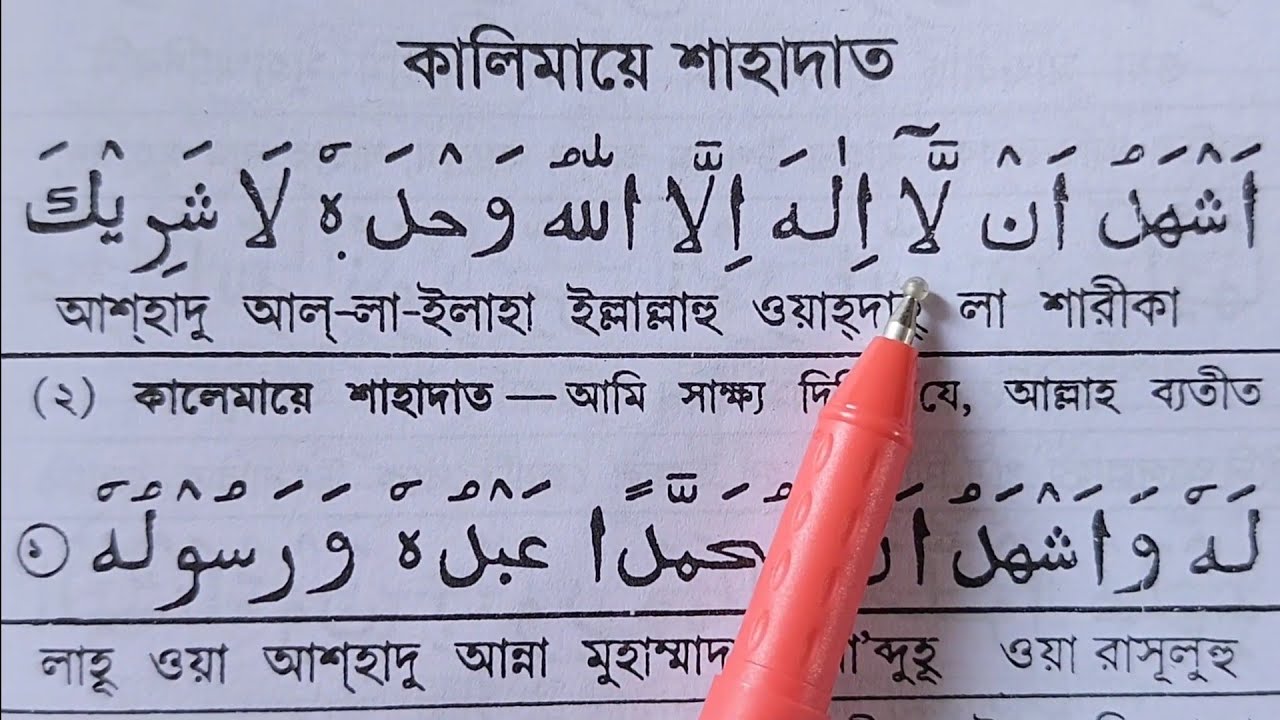 কালিমায়ে শাহাদাত
اَشْهَدُ اَنْ لَّآ اِلٰهَ اِلَّا اللهُ وَحْدَهٗ لَا شَرِيْكَ
আশ্হাদু আল্-লা-ইলাহা ইল্লাল্লাহু ওয়াহ্‌দাহূ লা শারীকা
(২) কালেমায়ে শাহাদাত — আমি সাক্ষ্য যে, আল্লাহ ব্যতীত
لَهٗ وَاَشْهَدُ اَنَّ مُحَمَّدًا عَبْدُهٗ وَرَسُوْلُهٗ
লাহূ ওয়া আশ্হাদু আন্না মুহাম্মাদ ওয়া রাসূলুহু